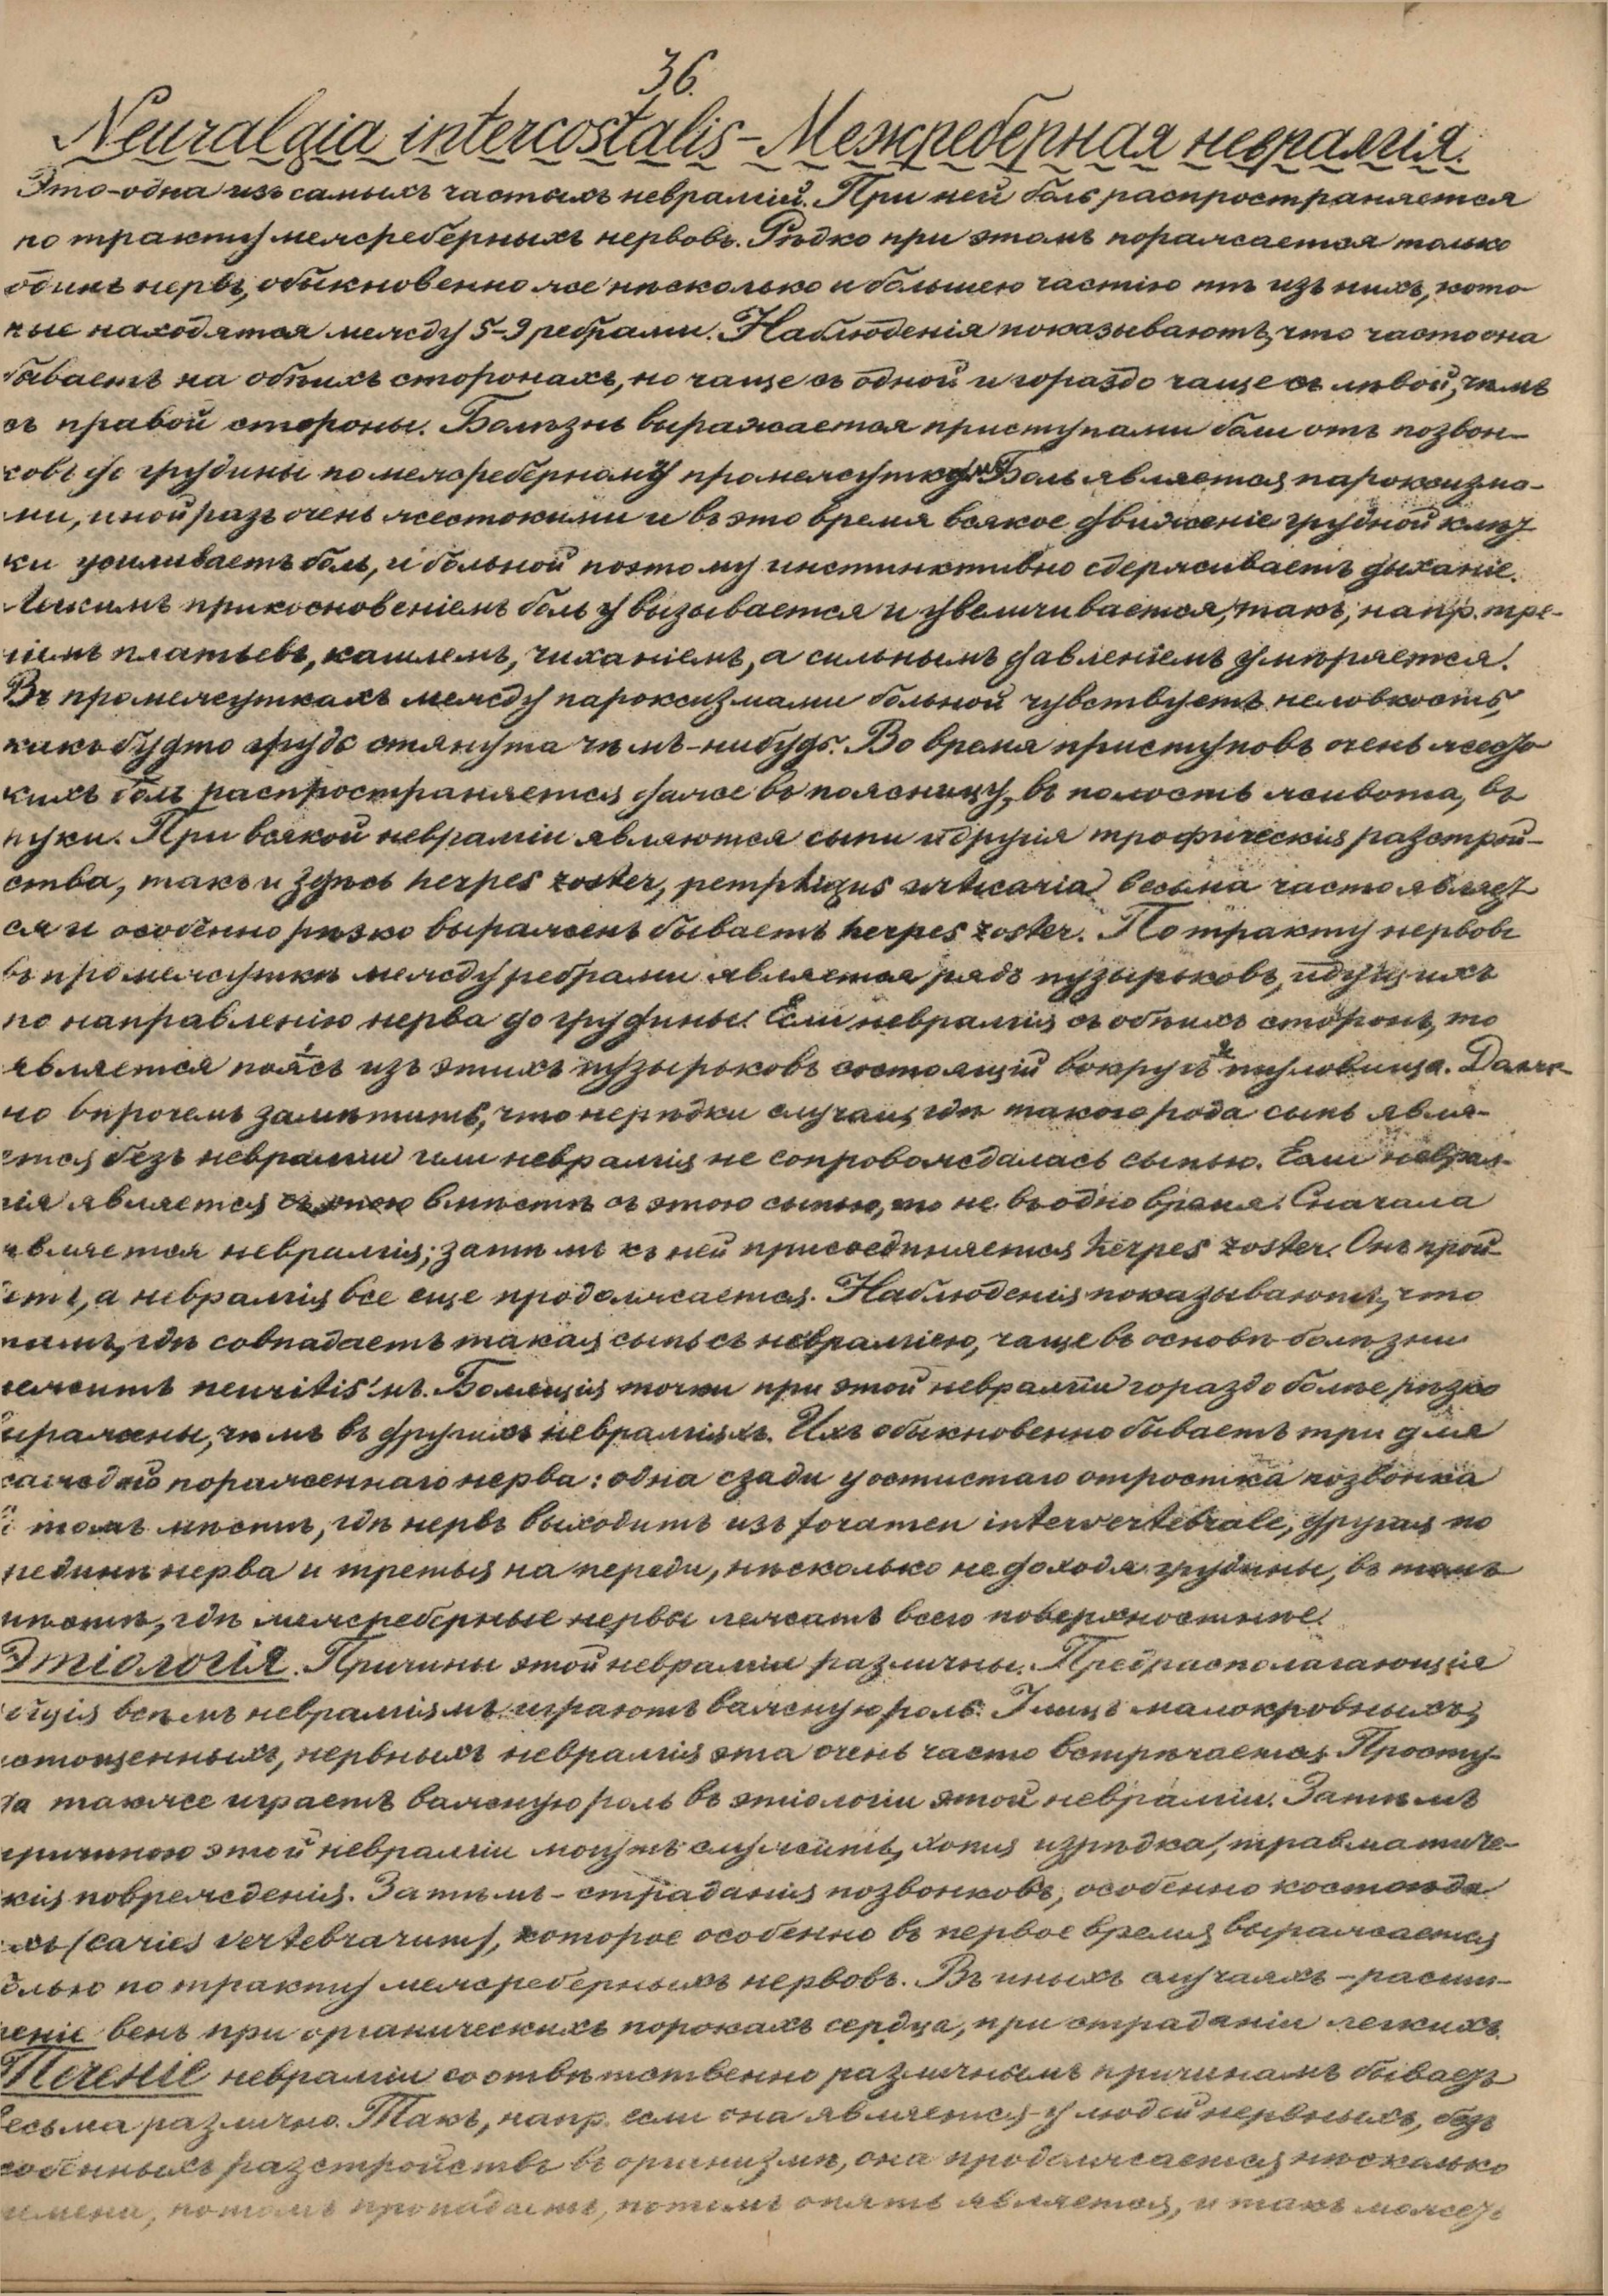 36.
Neuralgia intercostalis - Межреберная невралгія.
Это-одна изъ самыхъ частыхъ невралгій. При ней боль распространяется
по тракту межреберныхъ нервовъ. Рѣдко при этомъ поражается только
одинъ нервъ, обыкновенно же нѣсколько и большею частію тѣ изъ нихъ, кото-
рые находятся между 5-9 ребрами. Наблюденія показываютъ, что часто она
бываетъ на обѣихъ сторонахъ, но чаще съ одной и гораздо чаще съ лѣвой, чѣмъ
съ правой стороны. Болѣзнь выражается приступами боли отъ позвон-
ковъ до грудины по межреберному промежутку. Боль является пароксизма-
ми, иной разъ очень жестокими и въ это время всякое движеніе грудной клѣт
ки усиливаетъ боль, и больной поэтому инстинктивно сдерживаетъ дыханіе.
Легкимъ прикосновеніемъ боль вызывается и увеличивается, такъ, напр. тре-
ніемъ платьевъ, кашлемъ, чиханіемъ, а сильнымъ давленіемъ умѣряется.
Въ промежуткахъ между пароксизмами больной чувствуетъ неловкость,
какъ будто грудь стянута чѣмъ-нибудь. Во время приступовъ очень жесто
кихъ боль распространяется даже въ поясницу, въ полость живота, въ
руки. При всякой невралгіи являются сыпи и другія трофическія разстрой-
ства, такъ и здѣсь herpes zoster, pemphigus urticaria весьма часто являет
ся и особенно рѣзко выраженъ бываетъ herpes zoster. По тракту нервовъ
въ промежуткѣ между ребрами является рядъ пузырьковъ, идущихъ
по направленію нерва до грудины. Если невралгія съ обѣихъ сторонъ, то
является поясъ изъ этихъ пузырьковъ состоящій вокругъ туловища. Должно
но впрочемъ замѣтить, что нерѣдки случаи, гдѣ такого рода сыпь явля-
ется безъ невралгіи или невралгія не сопровождалась сыпью. Если неврал-
гія является вмѣстѣ съ этою сыпью, то не въ одно время. Сначала
является невралгія; затѣмъ къ ней присоединяется herpes zoster. Онъ прой-
детъ, а невралгія все еще продолжается. Наблюденія показываютъ, что
тамъ, гдѣ совпадаетъ такая сыпь съ невралгіею, чаще въ основѣ болѣзни
лежитъ neuritis'ъ. Болящія точки при этой невралгіи гораздо болѣе рѣзко
выражены, чѣмъ въ другихъ невралгіяхъ. Ихъ обыкновенно бываетъ три для
каждаго пораженнаго нерва: одна сзади у остистаго отростка позвонка
въ томъ мѣстѣ, гдѣ нервъ выходитъ изъ foramen intervertebrale, другая по
срединѣ нерва и третья на переди, нѣсколько не доходя грудины, въ томъ
мѣстѣ, гдѣ межреберные нервы лежатъ всего поверхностнѣе.
Этіологія. Причины этой невралгіи различны. Предрасполагающія
ко всѣмъ невралгіямъ играютъ важную роль. У лицъ малокровныхъ,
истощенныхъ, нервныхъ невралгія эта очень часто встрѣчается. Просту-
да также играетъ важную роль въ этіологіи этой невралгіи. Затѣмъ
причиною этой невралгіи могутъ служить, хотя изрѣдка, травматиче-
скія поврежденія. Затѣмъ - страданія позвонковъ, особенно костоѣда
ихъ (caries vertebrarum), которое особенно въ первое время выражается
болью по тракту межреберныхъ нервовъ. Въ иныхъ случаяхъ - расши-
реніе венъ при органическихъ порокахъ сердца, при страданіи легкихъ.
Теченіе невралгіи соотвѣтственно различнымъ причинамъ бываетъ
весьма различно. Такъ, напр. если она является у людей нервныхъ, безъ
особенныхъ разстройствъ въ организмѣ, она продолжается нѣсколько
времени, потомъ пропадаетъ, потомъ опять является, и такъ можетъ